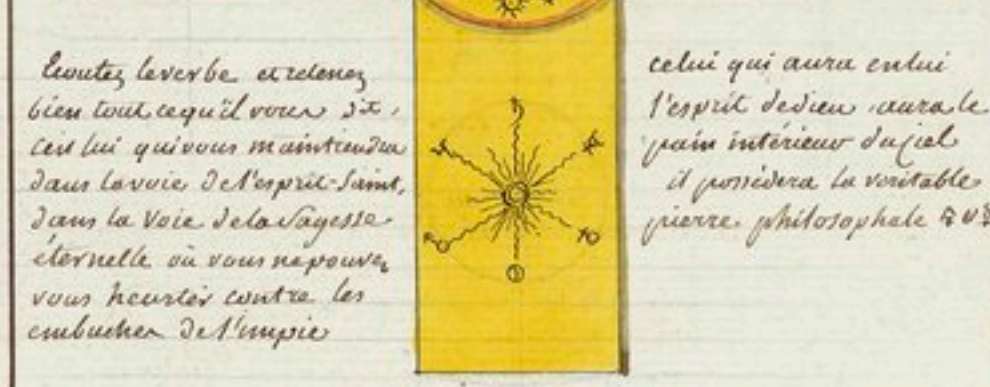 Ecoutez le verbe et retenez
bien tout ce qu'il vous dit,
c'est lui qui vous maintiendra
dans la voie de l'esprit-saint,
dans la voie de la sagesse
éternelle où vous ne pouvez
vous heurter contre les
embuches de l'impie
celui qui aura en lui
l'esprit de dieu aura le
pain intérieur du ciel
il possèdera la veritable
pierre philosophale